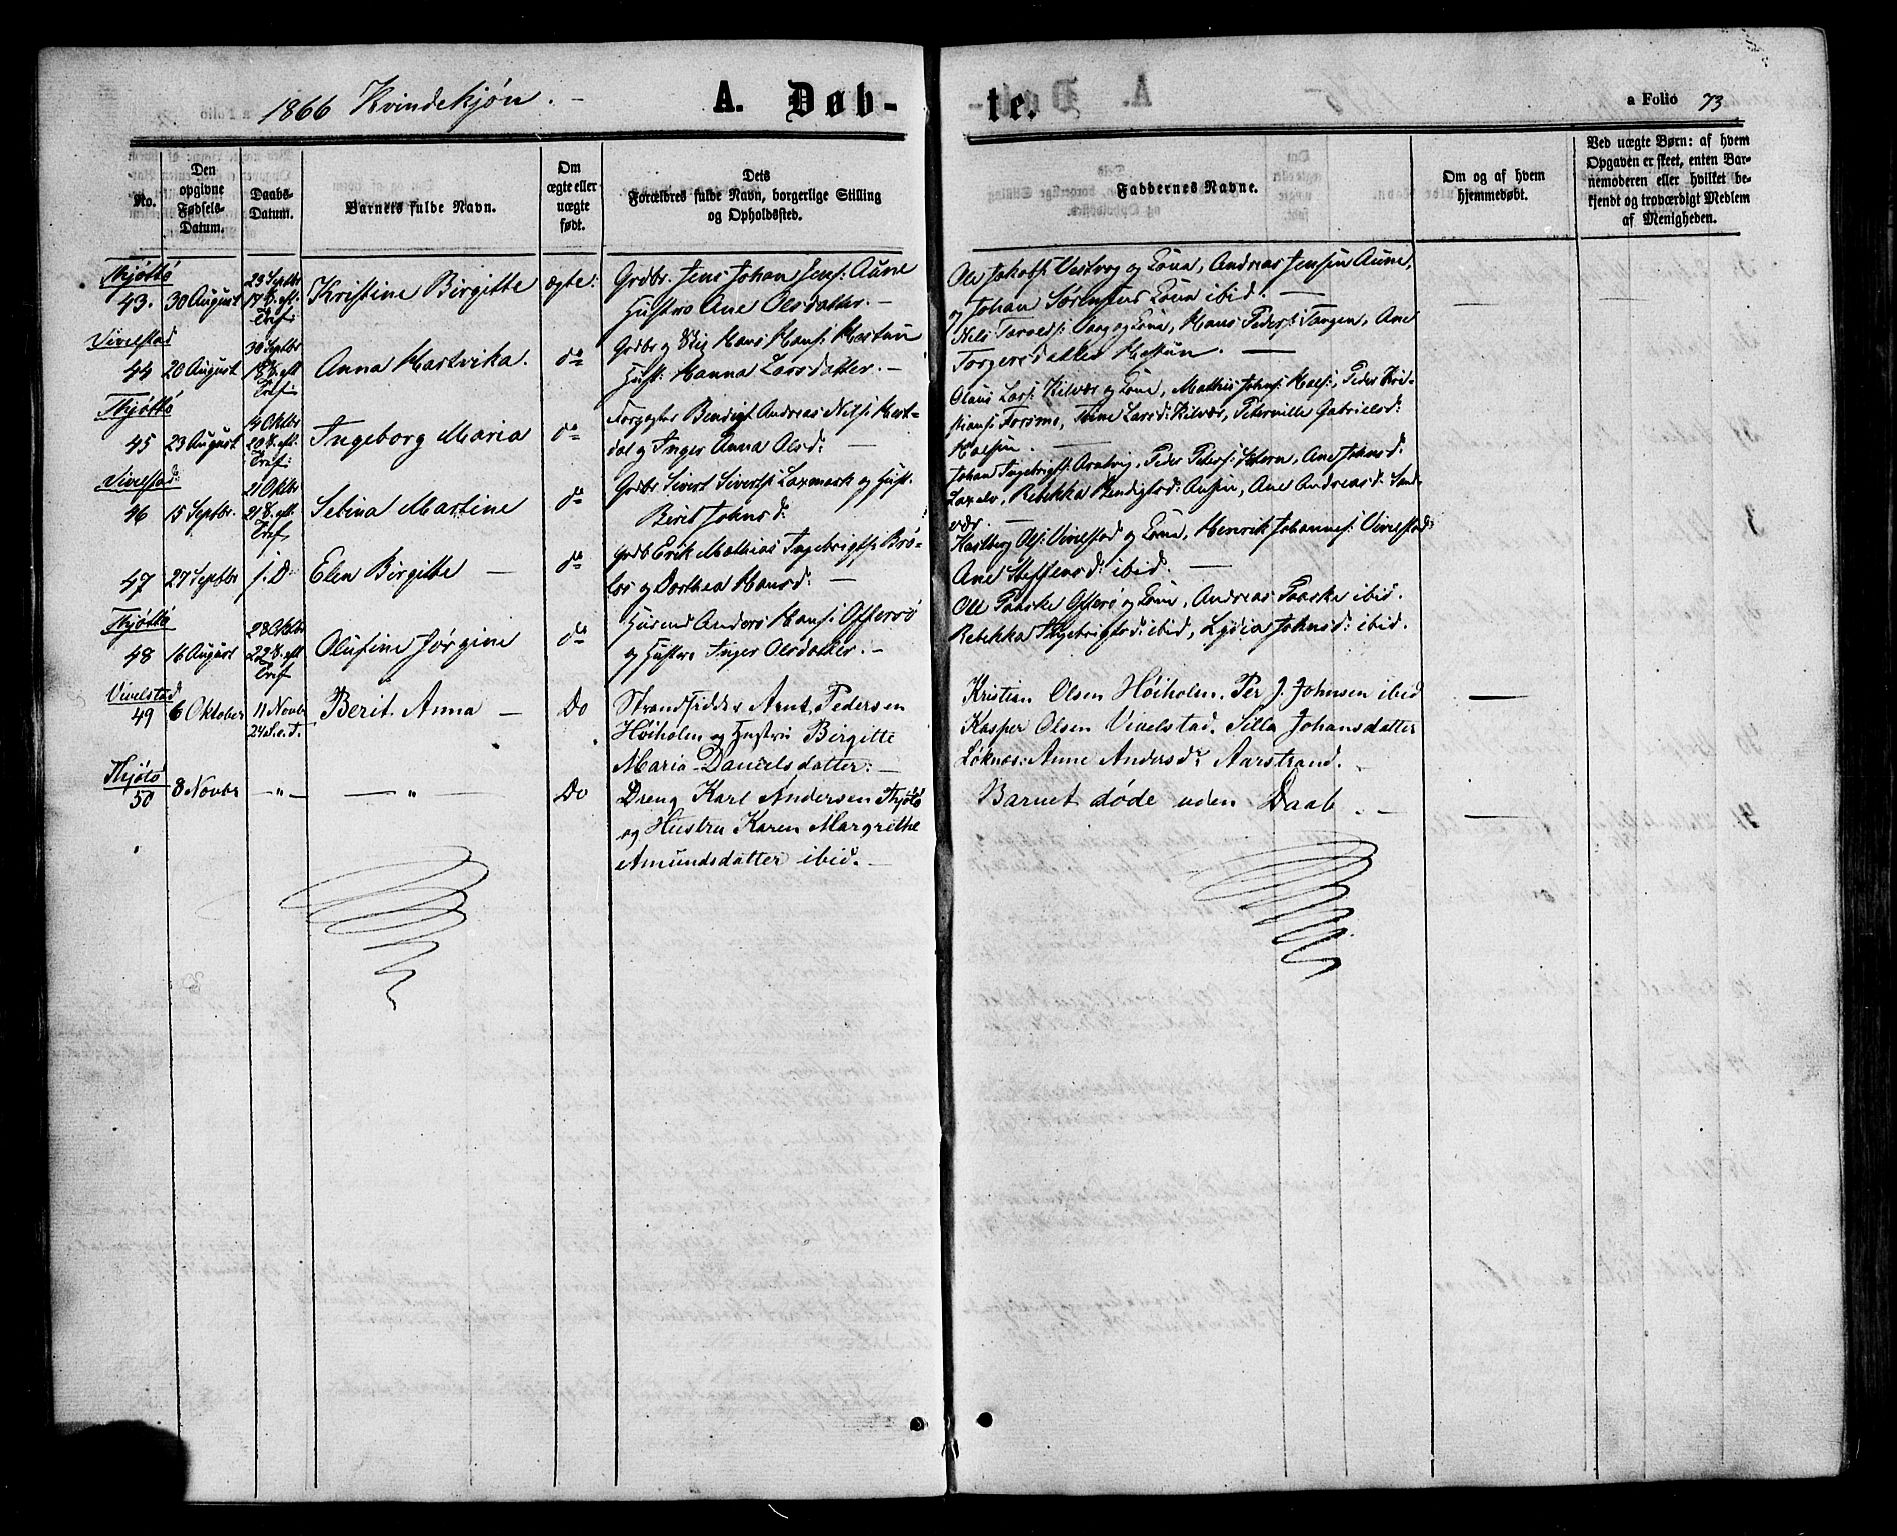 1866 Kvindekjøn. A. Døb- te. a Folio 73
No.
Den opgivne Fødsels-Datum.
Daabs-Datum.
Barnets fulde Navn.
Om ægte eller uægte født.
Dets Forældres fulde Navn, borgerlige Stilling og Opholdssted.
Faddernes Navne.
Om og af hvem hjemmedøbt.
Ved uægte Børn: af hvem Opgaven er skeet, enten Barnemoderen eller hvilket bekjendt og troværdigt Medlem af Menigheden.
Thjøttø
43. 30 August 23 Septbr 17 S. eft. Tref: Kristine Birgitte ægte: Grdbr. Jens Johan Jens: Aune
Hustro Ane Olsdatter. —
Ole Jakobs: Vestvog og Kona, Andreas Jensen Aune,
og Johan Sørensens Kona ibid. —
Vivelstad
44 20 August 30 Septbr 18 S. eft Tref: Anna Hartvika. do Grdbr og Hans Hans:
Hust: Hanna Larsdatter. —
Nils og Kona, Hans Peders: Tangen, Ane
Torgersdatter
Thjøttø
45 23 August 14 Oktbr 20 S. eft. Tref: Ingeborg Maria do Bendigt Andreas Nils: Hart-
dal og Inger Anna Olsd: —
Olaus Lars: Kilvær og Kona, Mathis Johns: Peder Kri-
stians: Forsmo, Larsd: Kilvær, Gabrielsd:
Vivelstad:
46 15 Septbr. 21 Oktbr 21 S. eft. Tref Sebina Martine do Grdbr Sivert Siverts: Laxmark og Hust.
Berit Johnsd:
Johan Ingebrigts: Peder Peters: Ane Johnsd:
Laxelv, Rebekka Bendigtsd: Ane Andreasd: Sand-
vær. —
47 27 Septbr s. D. Elen Birgitte — do Grdb Erik Mathias Ingebrigts: Brø-
løs og Dorthea Hansd: —
Ols: Vivelstad og Kona, Henrik Johannes: Vivelstad:
Ane Steffensd: ibid. —
Thjøttø
48 16 August 28 Oktbr 22 S. eft Tref Olufine Jørgine do Husmd Anders Hans: Offersø
og Hustro Inger Olsdatter. —
Ole Paaske Offersø og Kona, Andreas Paaske ibid.
Rebekka Ingebrigtsd: ibid, Lydia Johnsd: ibid.
Vivelstad
49 6 Oktober 11 Novbr 24 S. e. T. Berit Anna — Do Strandsidder Arnt Pedersen
Høiholm og Hustru Birgitte
Maria Danielsdatter: —
Kristian Olsen Høiholm. Per J. Johnsen ibid —
Kasper Olsen Vivelstad. Silla Johansdatter
Løknæs: Anne Andersdr Aarstrand. —
Thjøtø
50 8 Novbr —„— — „ — Do Dreng Karl Andersen Thjøtø
og Hustru Karen Margrethe
Amundsdatter ibid. —
Barnet døde uden Daab. — —